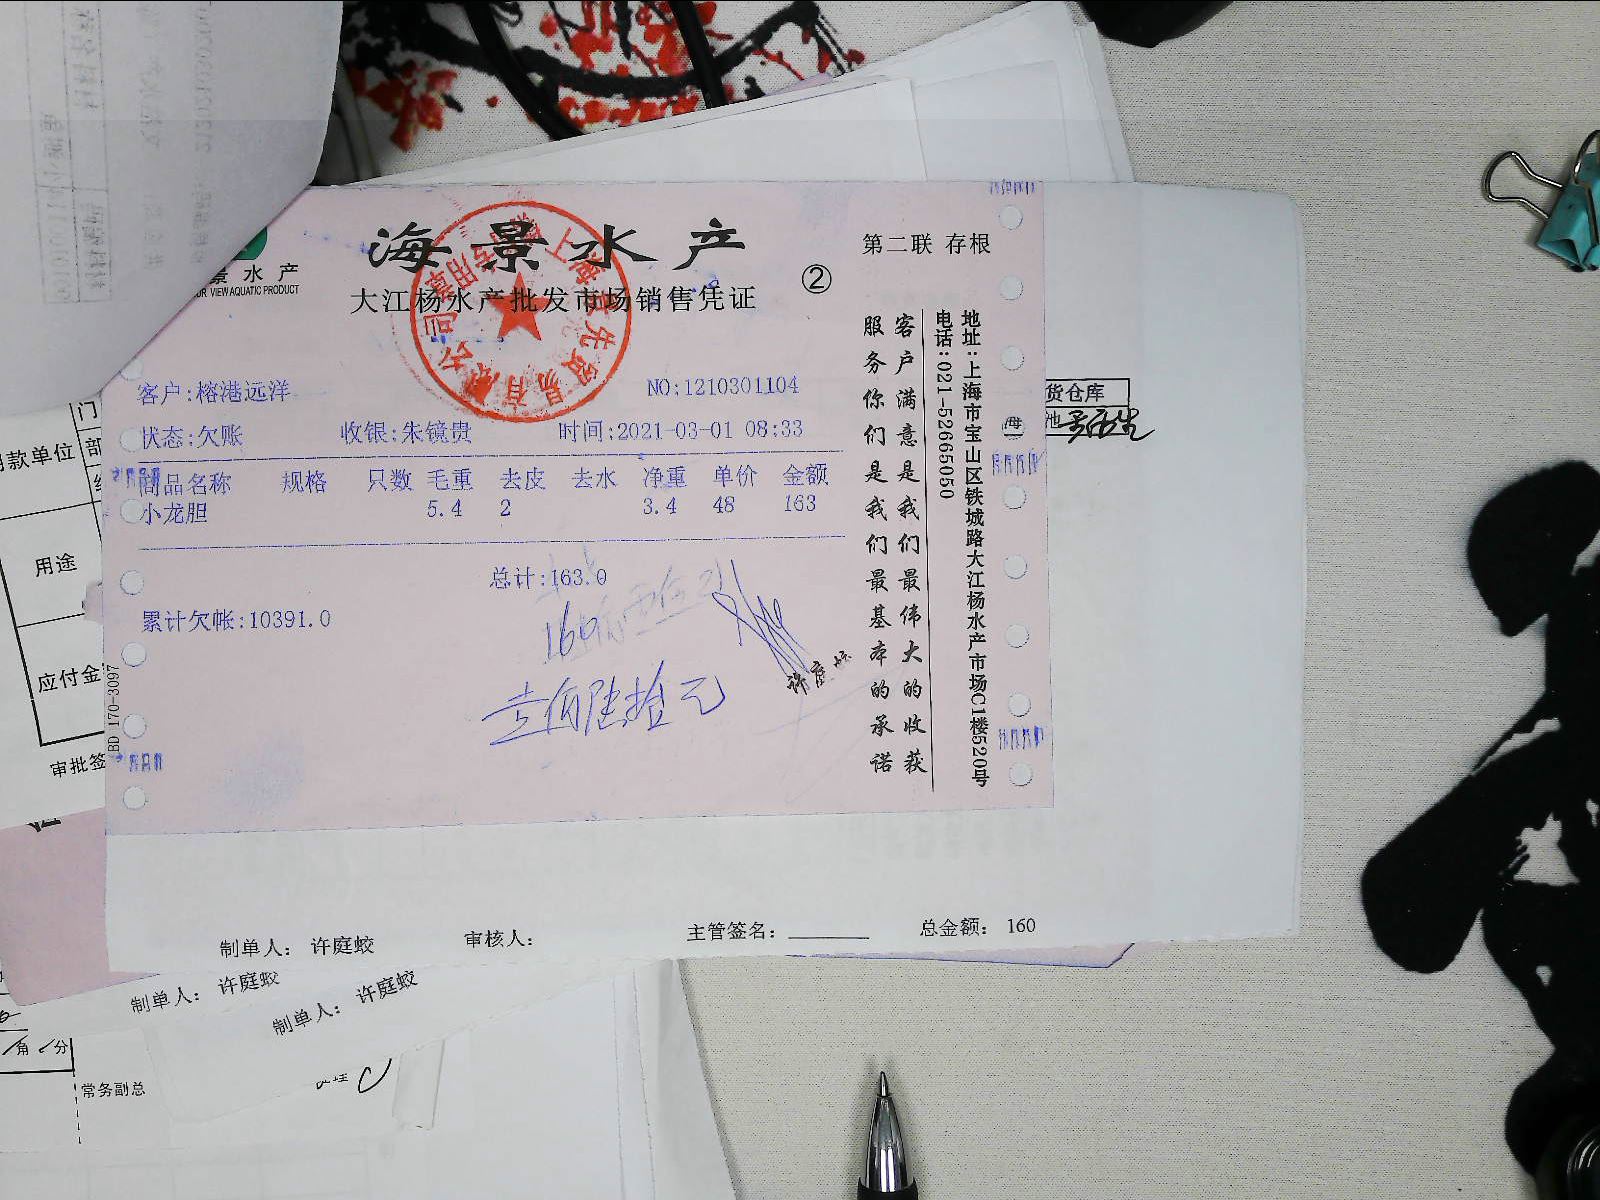 海景水产
景水产
VIEW AQUATIC PRODUCT
大江杨水产批发市场销售凭证
②
第二联 存根
客户:榕港远洋
NO:1210301104
状态:欠账 收银:朱镜贵 时间:2021-03-01 08:33
商品名称 规格 只数 毛重 去皮 去水 净重 单价 金额
小龙胆 5.4 2 3.4 48 163
总计:163.0
累计欠帐:10391.0
160
壹佰陆拾元
许庭蛟
客户满意是我们最伟大的收获
服务你们是我们最基本的承诺
地址:上海市宝山区铁城路大江杨水产市场C1楼520号
电话:021-52665050
BD 170-3097
货仓库
海
池
款单位
门
部
用途
应付金
审批签
制单人: 许庭蛟 审核人: 主管签名: 总金额: 160
制单人: 许庭蛟
制单人: 许庭蛟
角 分
常务副总